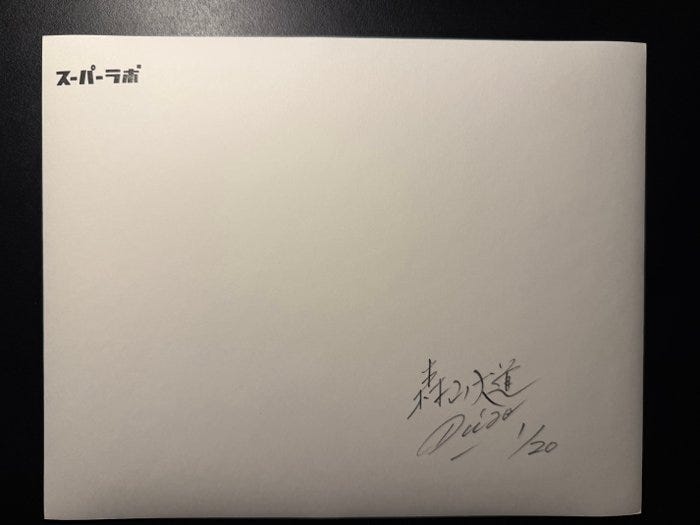 スーパーラボ
森山大道
Daido
1/20